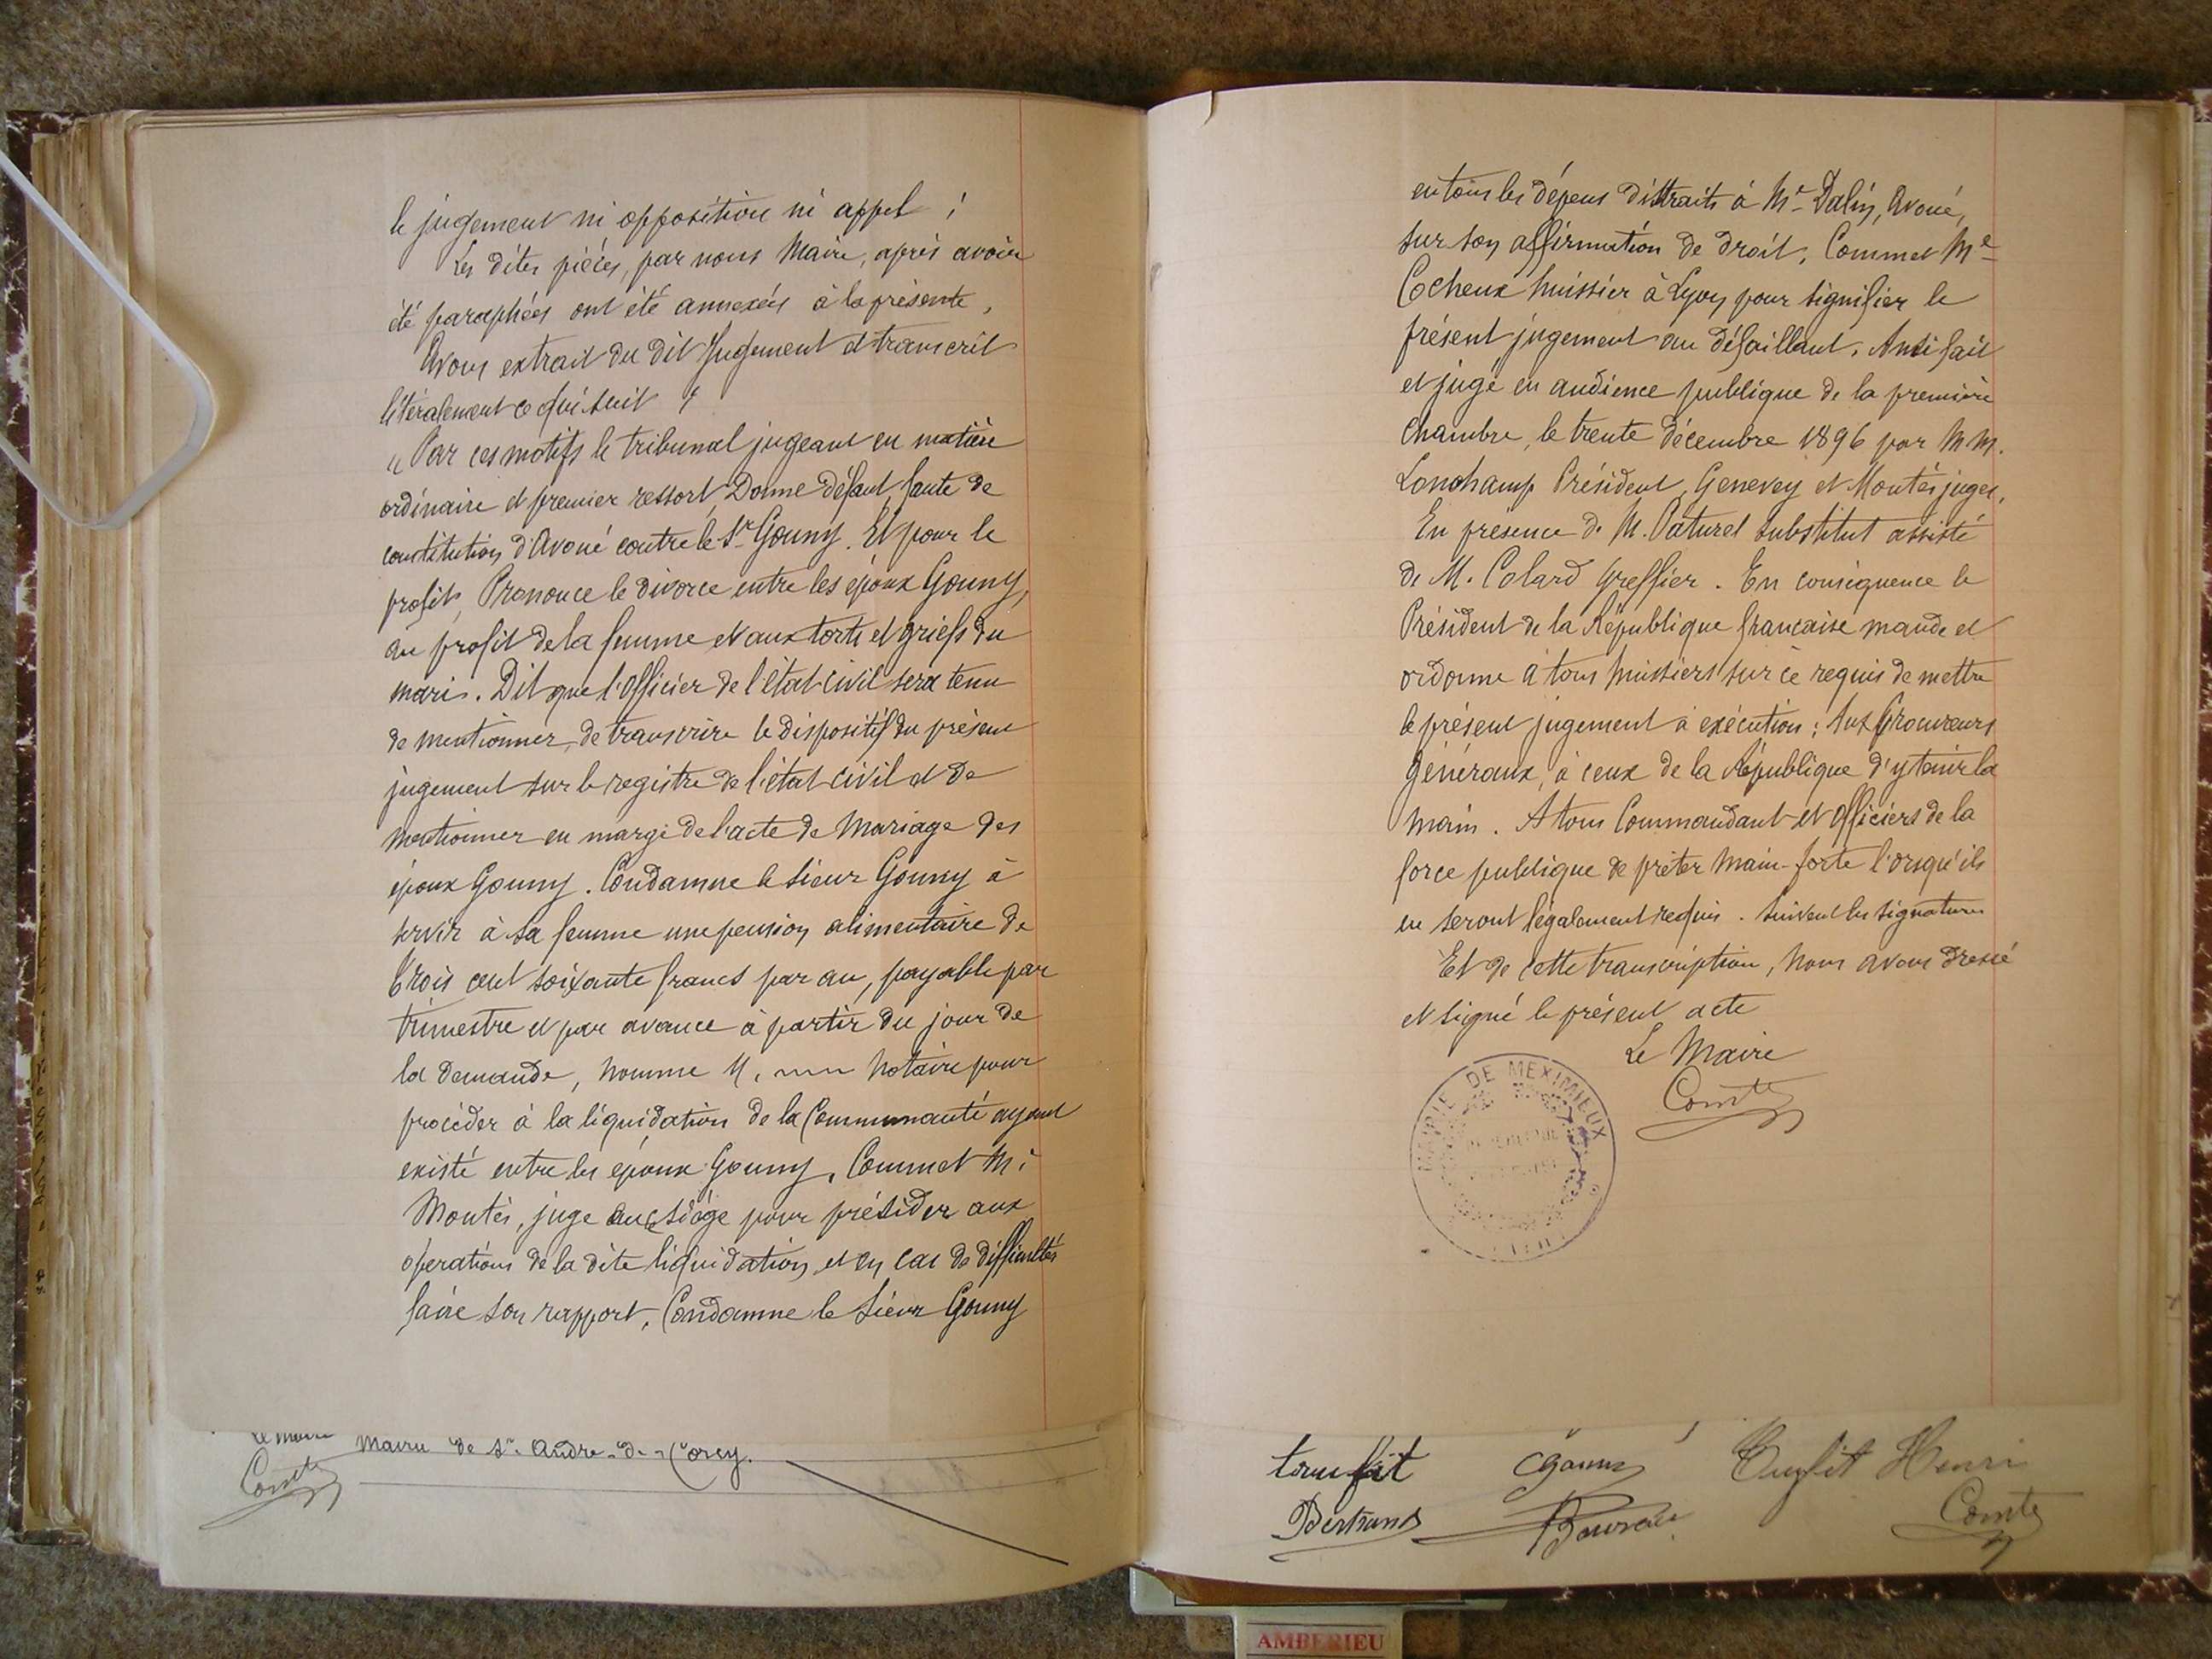 le jugement ni opposition ni appel ;
Les dites pièces, par nous Maire, après avoir
été paraphées ont été annexées à la présente,
Avons extrait du dit Jugement et transcrit
litéralement ce qui suit
" Par ces motifs le tribunal jugeant en matière
ordinaire et premier ressort, Donne défaut faute de
constitution d'Avoué contre le Sr Gouny. Et pour le
profit, Prononce le divorce entre les époux Gouny,
au profit de la femme et aux torts et griefs du
mari. Dit que l'Officier de l'état civil sera tenu
de mentionner, de transcrire le dispositif du présent
jugement sur le registre de l'état civil et de
mentionner en marge de l'acte de Mariage des
époux Gouny. Condamne le sieur Gouny à
servir à sa femme une pension alimentaire de
trois cent soixante francs par an, payable par
trimestre et par avance à partir du jour de
la demande, nomme M. un Notaire pour
procéder à la liquidation de la Communauté ayant
existé entre les époux Gouny, Commet M.
Montès, juge au siège pour présider aux
opérations de la dite liquidation et en cas de difficultés
faire son rapport, Condamne le sieur Gouny
Le Maire
Comte
Mairie de St. André-de-Corcy.
en tous les dépens distraits à Me Dalin, Avoué,
sur son affirmation de droit, Commet Me
Cocheux huissier à Lyon pour signifier le
présent jugement au défaillant. Ainsi fait
et jugé en audience publique de la première
Chambre, le trente décembre 1896 par M.M.
Lonchamp Président, Genevey et Montès juges,
En présence de M. Paturel substitut assisté
de M. Colard Greffier. En conséquence le
Président de la République française mande et
ordonne à tous huissiers sur ce requis de mettre
le présent jugement à exécution ; Aux Procureurs
Généraux, à ceux de la République d'y tenir la
main. A tous Commandant et Officiers de la
force publique de prêter main-forte l'orsqu'ils
en seront légalement requis. Suivent les signatures
Et de cette transcription, nous avons dressé
et signé le présent acte
Le Maire
Comte
MAIRIE DE MEXIMIEUX
Bertrand
Henri
Comte
AMBERIEU